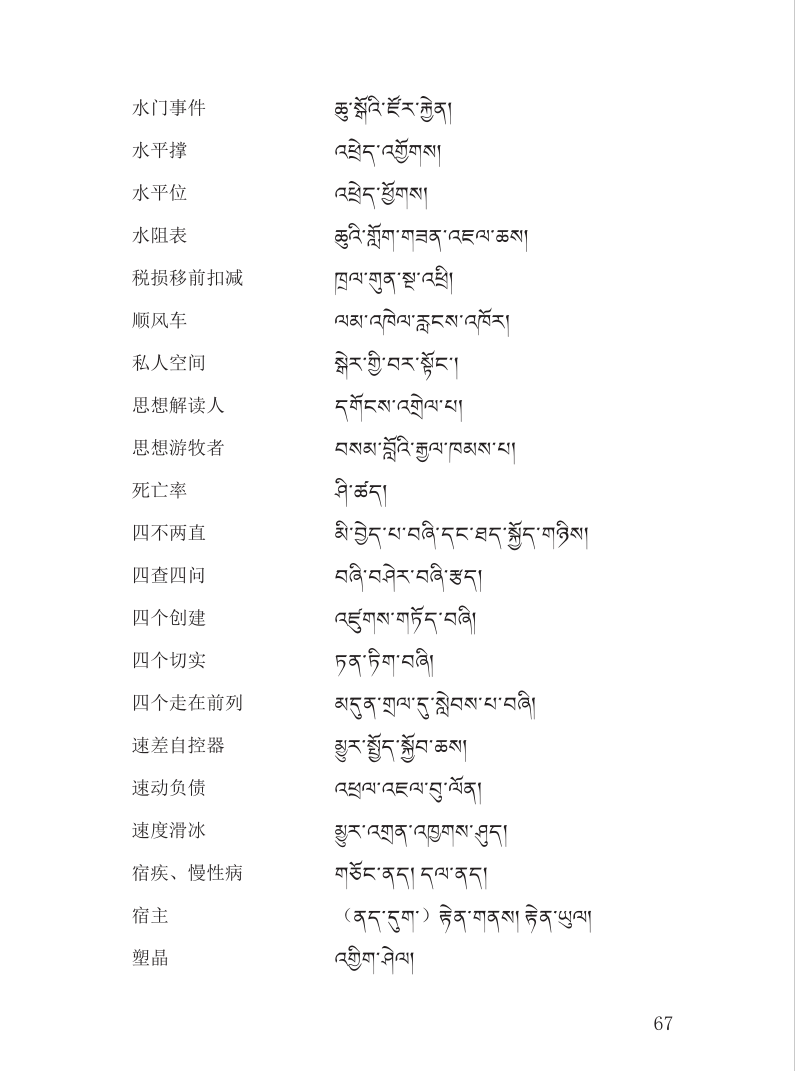 水门事件 ཆུ་སྒོའི་ཛོར་རྐྱེན།
水平撑 འཕྲེད་འགྱོགས།
水平位 འཕྲེད་ཕྱོགས།
水阻表 ཆུའི་གློག་གཟན་འཇལ་ཆས།
税损移前扣减 ཁྲལ་གུན་སྔ་འཕྲི།
顺风车 ལམ་འཁེལ་རླངས་འཁོར།
私人空间 སྒེར་གྱི་བར་སྟོང་།
思想解读人 དགོངས་འགྲེལ་པ།
思想游牧者 བསམ་བློའི་རྒྱལ་ཁམས་པ།
死亡率 ཤི་ཚད།
四不两直 མི་བྱེད་པ་བཞི་དང་ཐད་སྐྱོད་གཉིས།
四查四问 བཞི་བཤེར་བཞི་རྩད།
四个创建 འཛུགས་གཏོད་བཞི།
四个切实 ཏན་ཏིག་བཞི།
四个走在前列 མདུན་གྲལ་དུ་སླེབས་པ་བཞི།
速差自控器 མྱུར་སྤྱོད་སྐྱོབ་ཆས།
速动负债 འཕྲལ་འཇལ་བུ་ལོན།
速度滑冰 མྱུར་འགྲན་འཁྱགས་ཤུད།
宿疾、慢性病 གཅོང་ནད། དལ་ནད།
宿主 （ནད་དུག་）རྟེན་གནས། རྟེན་ཡུལ།
塑晶 འགྱིག་ཤེལ།
67